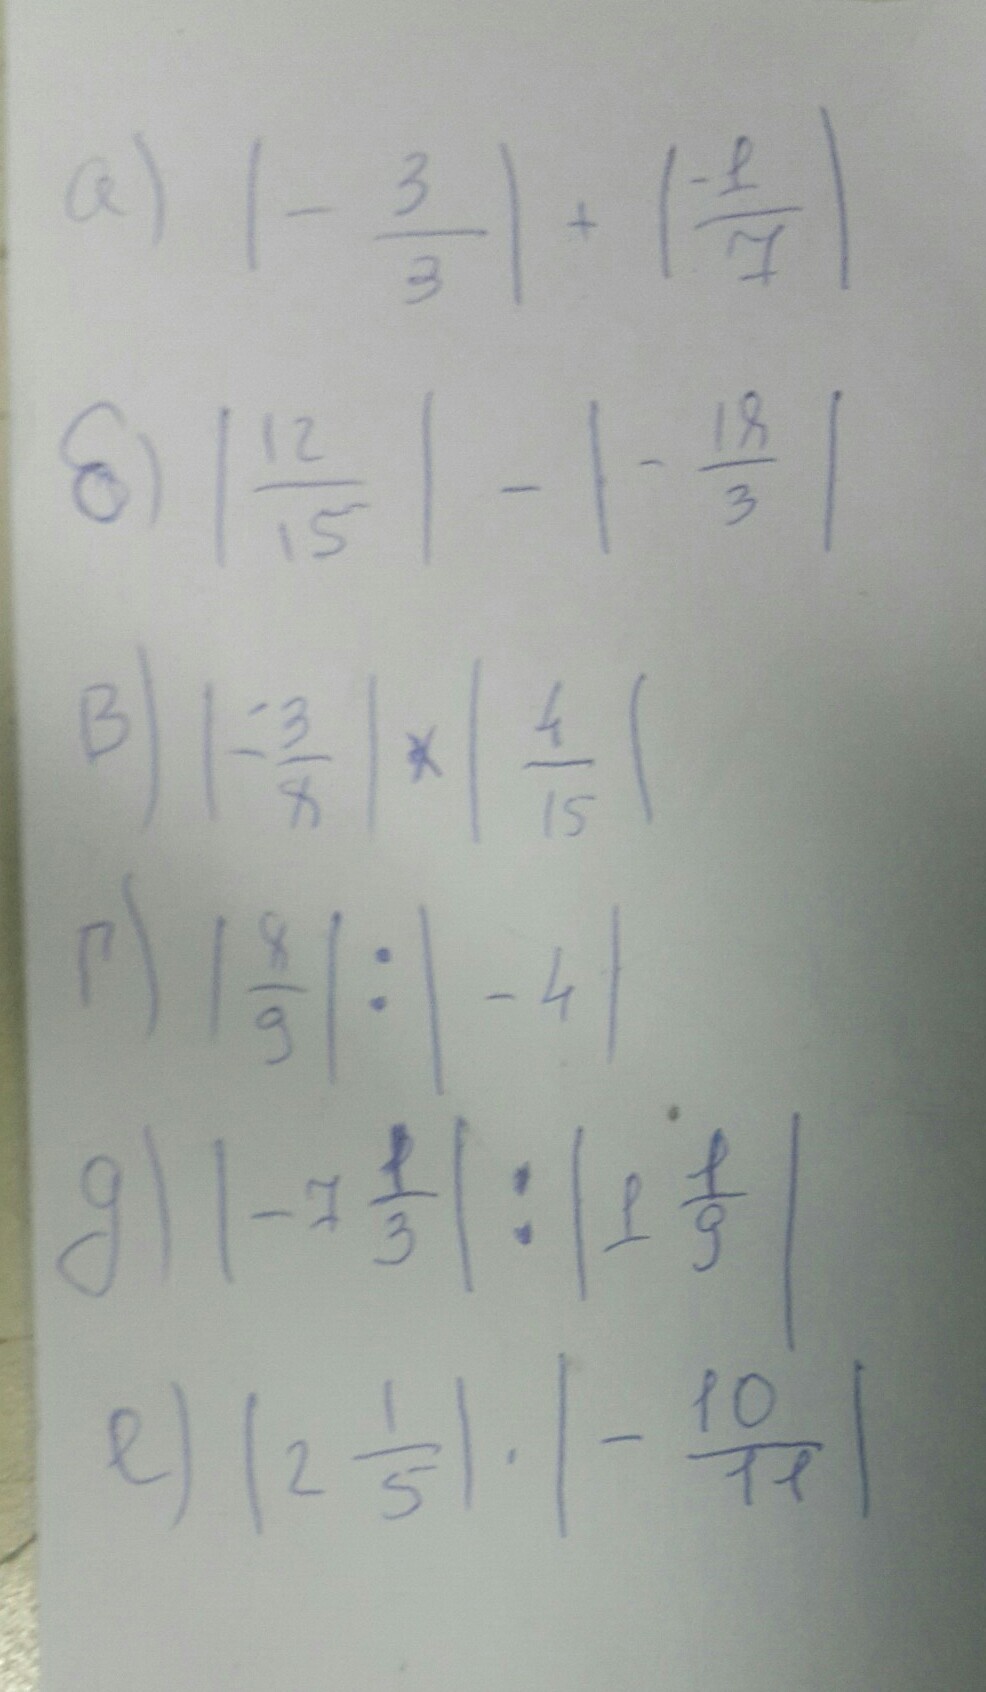 а) |- 3/3| + |-1/7|
б) |12/15| - |- 18/3|
в) |-3/8| * |4/15|
г) |8/9| : |- 4|
д) |-7 1/3| : |1 1/9|
е) |2 1/5| · |- 10/11|